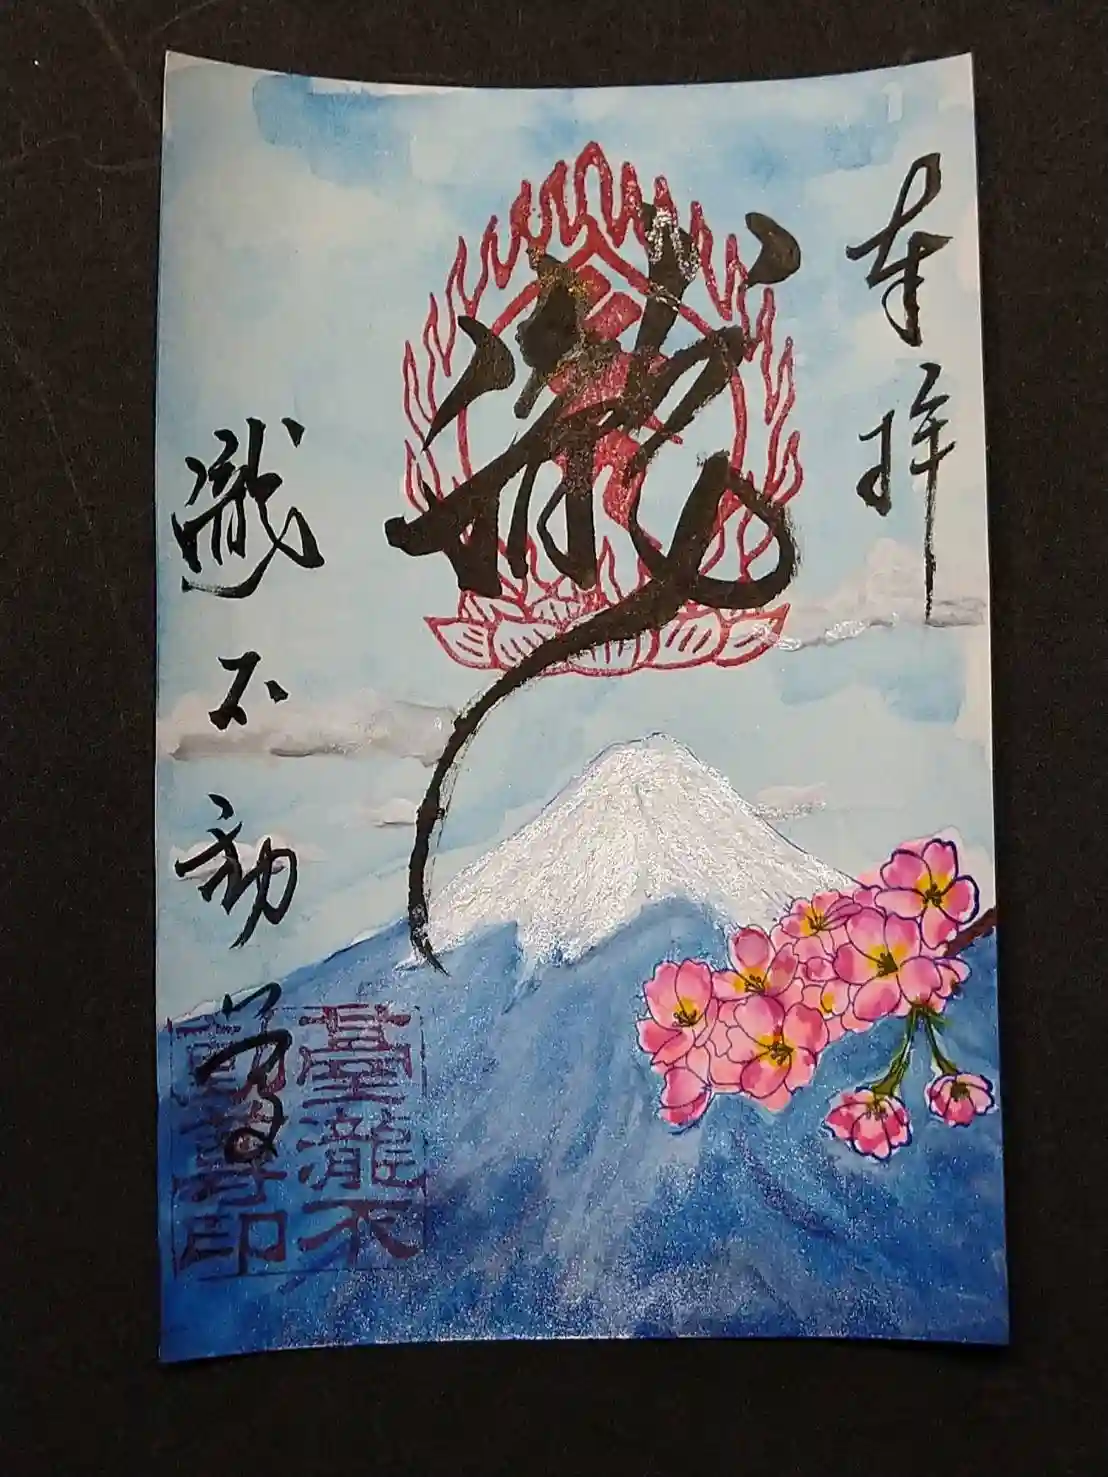 奉拝
龍
瀧不動尊
臺瀧不
動尊印